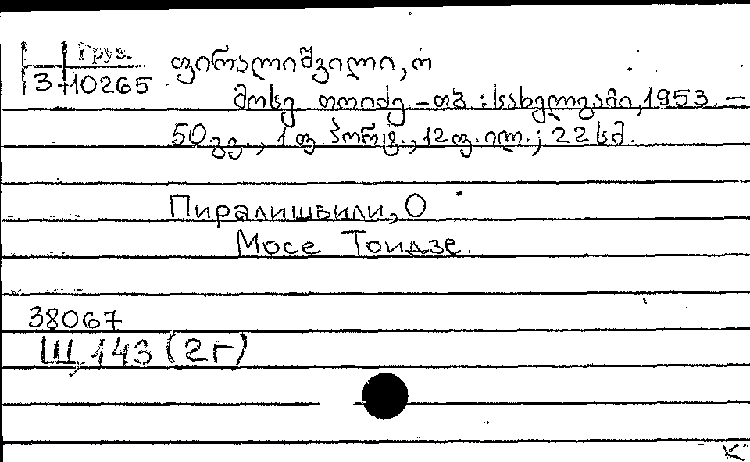 Груз.
3-10265
ფირალიშვილი, ო
მოსე თოიძე - თბ. : სახელგამი, 1953 -
50 გვ., 1 ფ პორტ., 12 ფ. ილ. ; 22 სმ.
Пиралишвили, О
Мосе Тоидзе.
38067
Щ 143 (2Г)
К